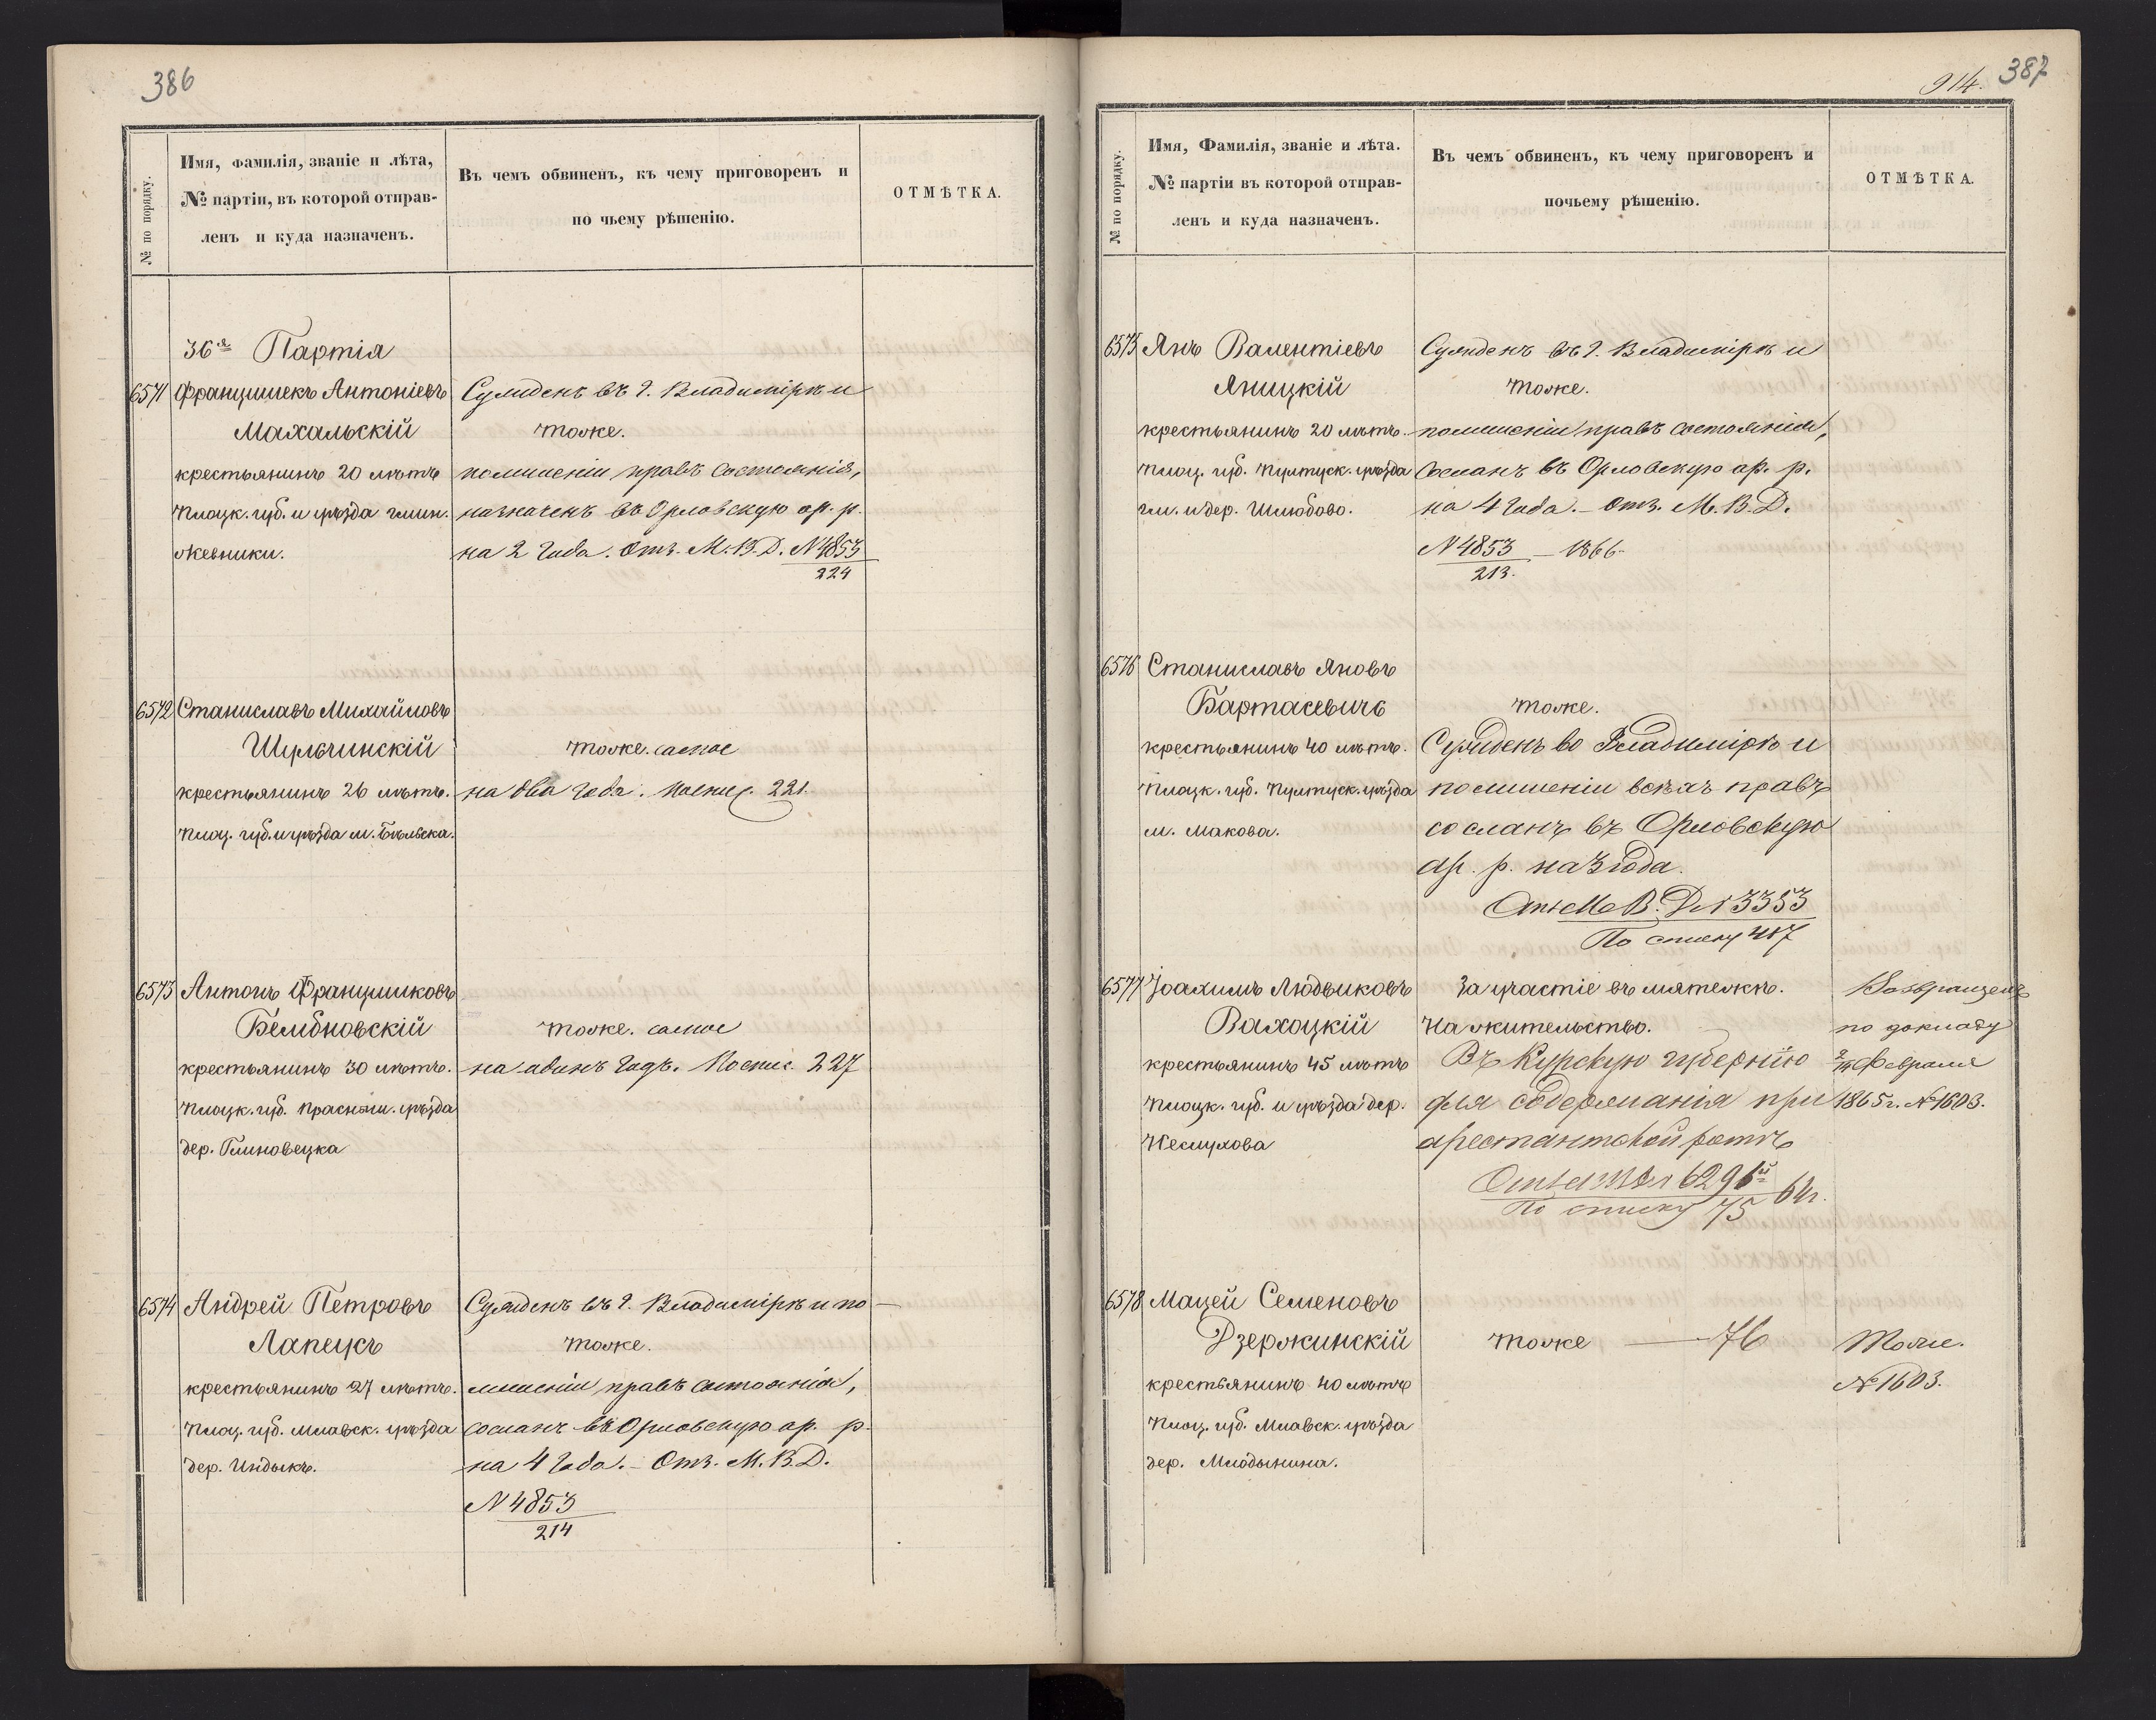 386
№ по порядку.
Имя, фамилія, званіе и лѣта,
№ партіи, въ которой отправ-
ленъ и куда назначенъ.
Въ чемъ обвиненъ, къ чему приговоренъ и
по чьему рѣшенію.
ОТМѢТКА.
36я Партія
6571 Францишекъ Антоніевъ
Махальскій
крестьянинъ 20 лѣтъ
Плоцк. губ. и уѣзда гмин.
Жевники.
Сужденъ въ г. Владимірѣ и
тоже.
по лишеніи правъ состоянія,
назначенъ въ Орловскую ар. р.
на 2 года. Отз. М. В. Д. N 4853
224
6572 Станиславъ Михайловъ
Шульчинскій
крестьянинъ 26 лѣтъ.
Плоц. губ. и уѣзда м. Бѣльска.
тоже. самое
на два года. По спис. 221.
6573 Антонъ Францишковъ
Бембновскій
крестьянинъ 30 лѣтъ.
Плоцк. губ. Прасныш. уѣзда
дер. Глиновецка
тоже. самое
на одинъ годъ. По спис. 227
6574 Андрей Петровъ
Лапецкъ
крестьянинъ 27 лѣтъ.
Плоц. губ. Млавск. уѣзда
дер. Индыкъ.
Сужденъ въ г. Владимірѣ и по
тоже.
лишеніи правъ состоянія,
сосланъ въ Орловскую ар. р.
на 4 года. – Отз. М. В. Д.
N 4853
214
914. 387
№ по порядку.
Имя, Фамилія, званіе и лѣта.
№ партіи въ которой отправ-
ленъ и куда назначенъ.
Въ чемъ обвиненъ, къ чему приговоренъ и
почьему рѣшенію.
ОТМѢТКА.
6575 Янъ Валентіевъ
Яницкій
крестьянинъ 20 лѣтъ.
Плоц. губ. Пултуск. уѣзда
гм. и дер. Шлюбово.
Сужденъ въ г. Владимірѣ и
тоже.
по лишеніи правъ состоянія,
сосланъ въ Орловскую ар. р.
на 4 года. – Отз. М. В. Д.
N 4853 – 1866
213.
6576 Станиславъ Яновъ
Бартасевичъ
крестьянинъ 40 лѣтъ.
Плоцк. губ. Пултуск. уѣзда
м. Макова.
тоже.
Сужденъ во Владимірѣ и
по лишеніи всѣхъ правъ
сосланъ въ Орловскую
ар. р. на 3 года.
Отз М. В. Д N 3353
По списку 407
6577 Іоахимъ Людвиковъ
Вахоцкій
крестьянинъ 45 лѣтъ
Плоцк. губ. и уѣзда дер.
Неслухова
За участіе въ мятежѣ.
На жительство.
Въ Курскую губернію
для содержанія при
арестантской ротѣ
6291 64 г.
По списку 75
Возвращенъ
по докладу
2/14 Февраля
1865 г. № 1603.
6578 Мацей Семеновъ
Дзержинскій
крестьянинъ 40 лѣтъ
Плоц. губ. Млавск. уѣзда
дер. Млодынина.
тоже — 76
Тоже.
№ 1603.